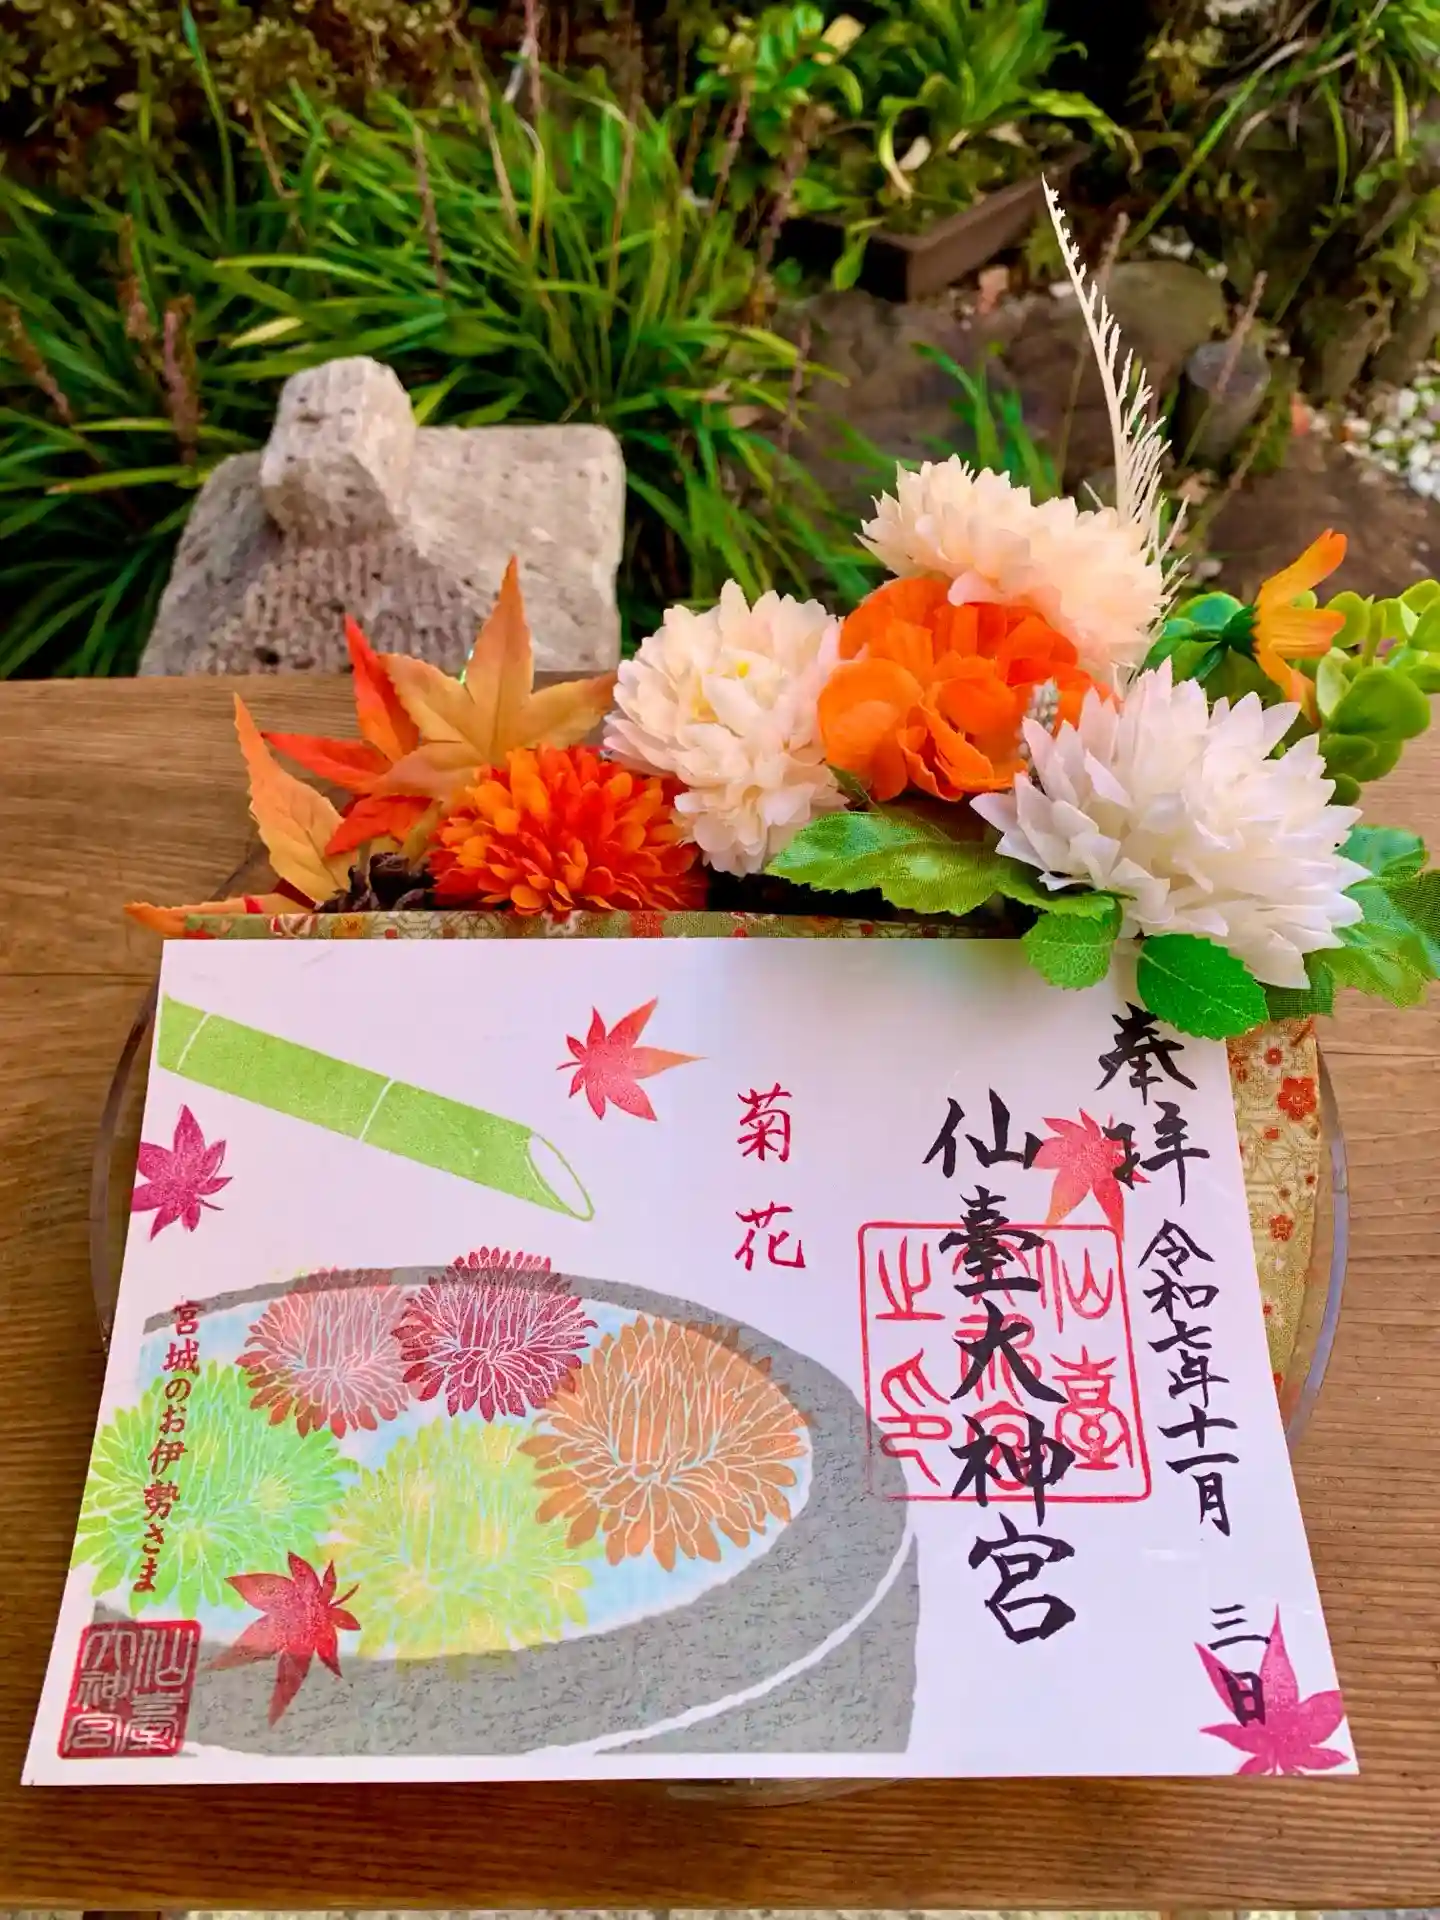 奉拝
令和七年十一月
三日
仙臺大神宮
仙臺
大神宮
之印
菊花
宮城のお伊勢さま
仙臺
大神宮